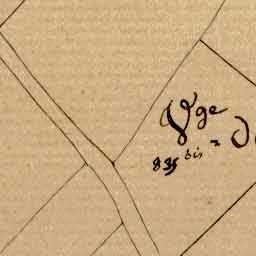 Vge
835 bis